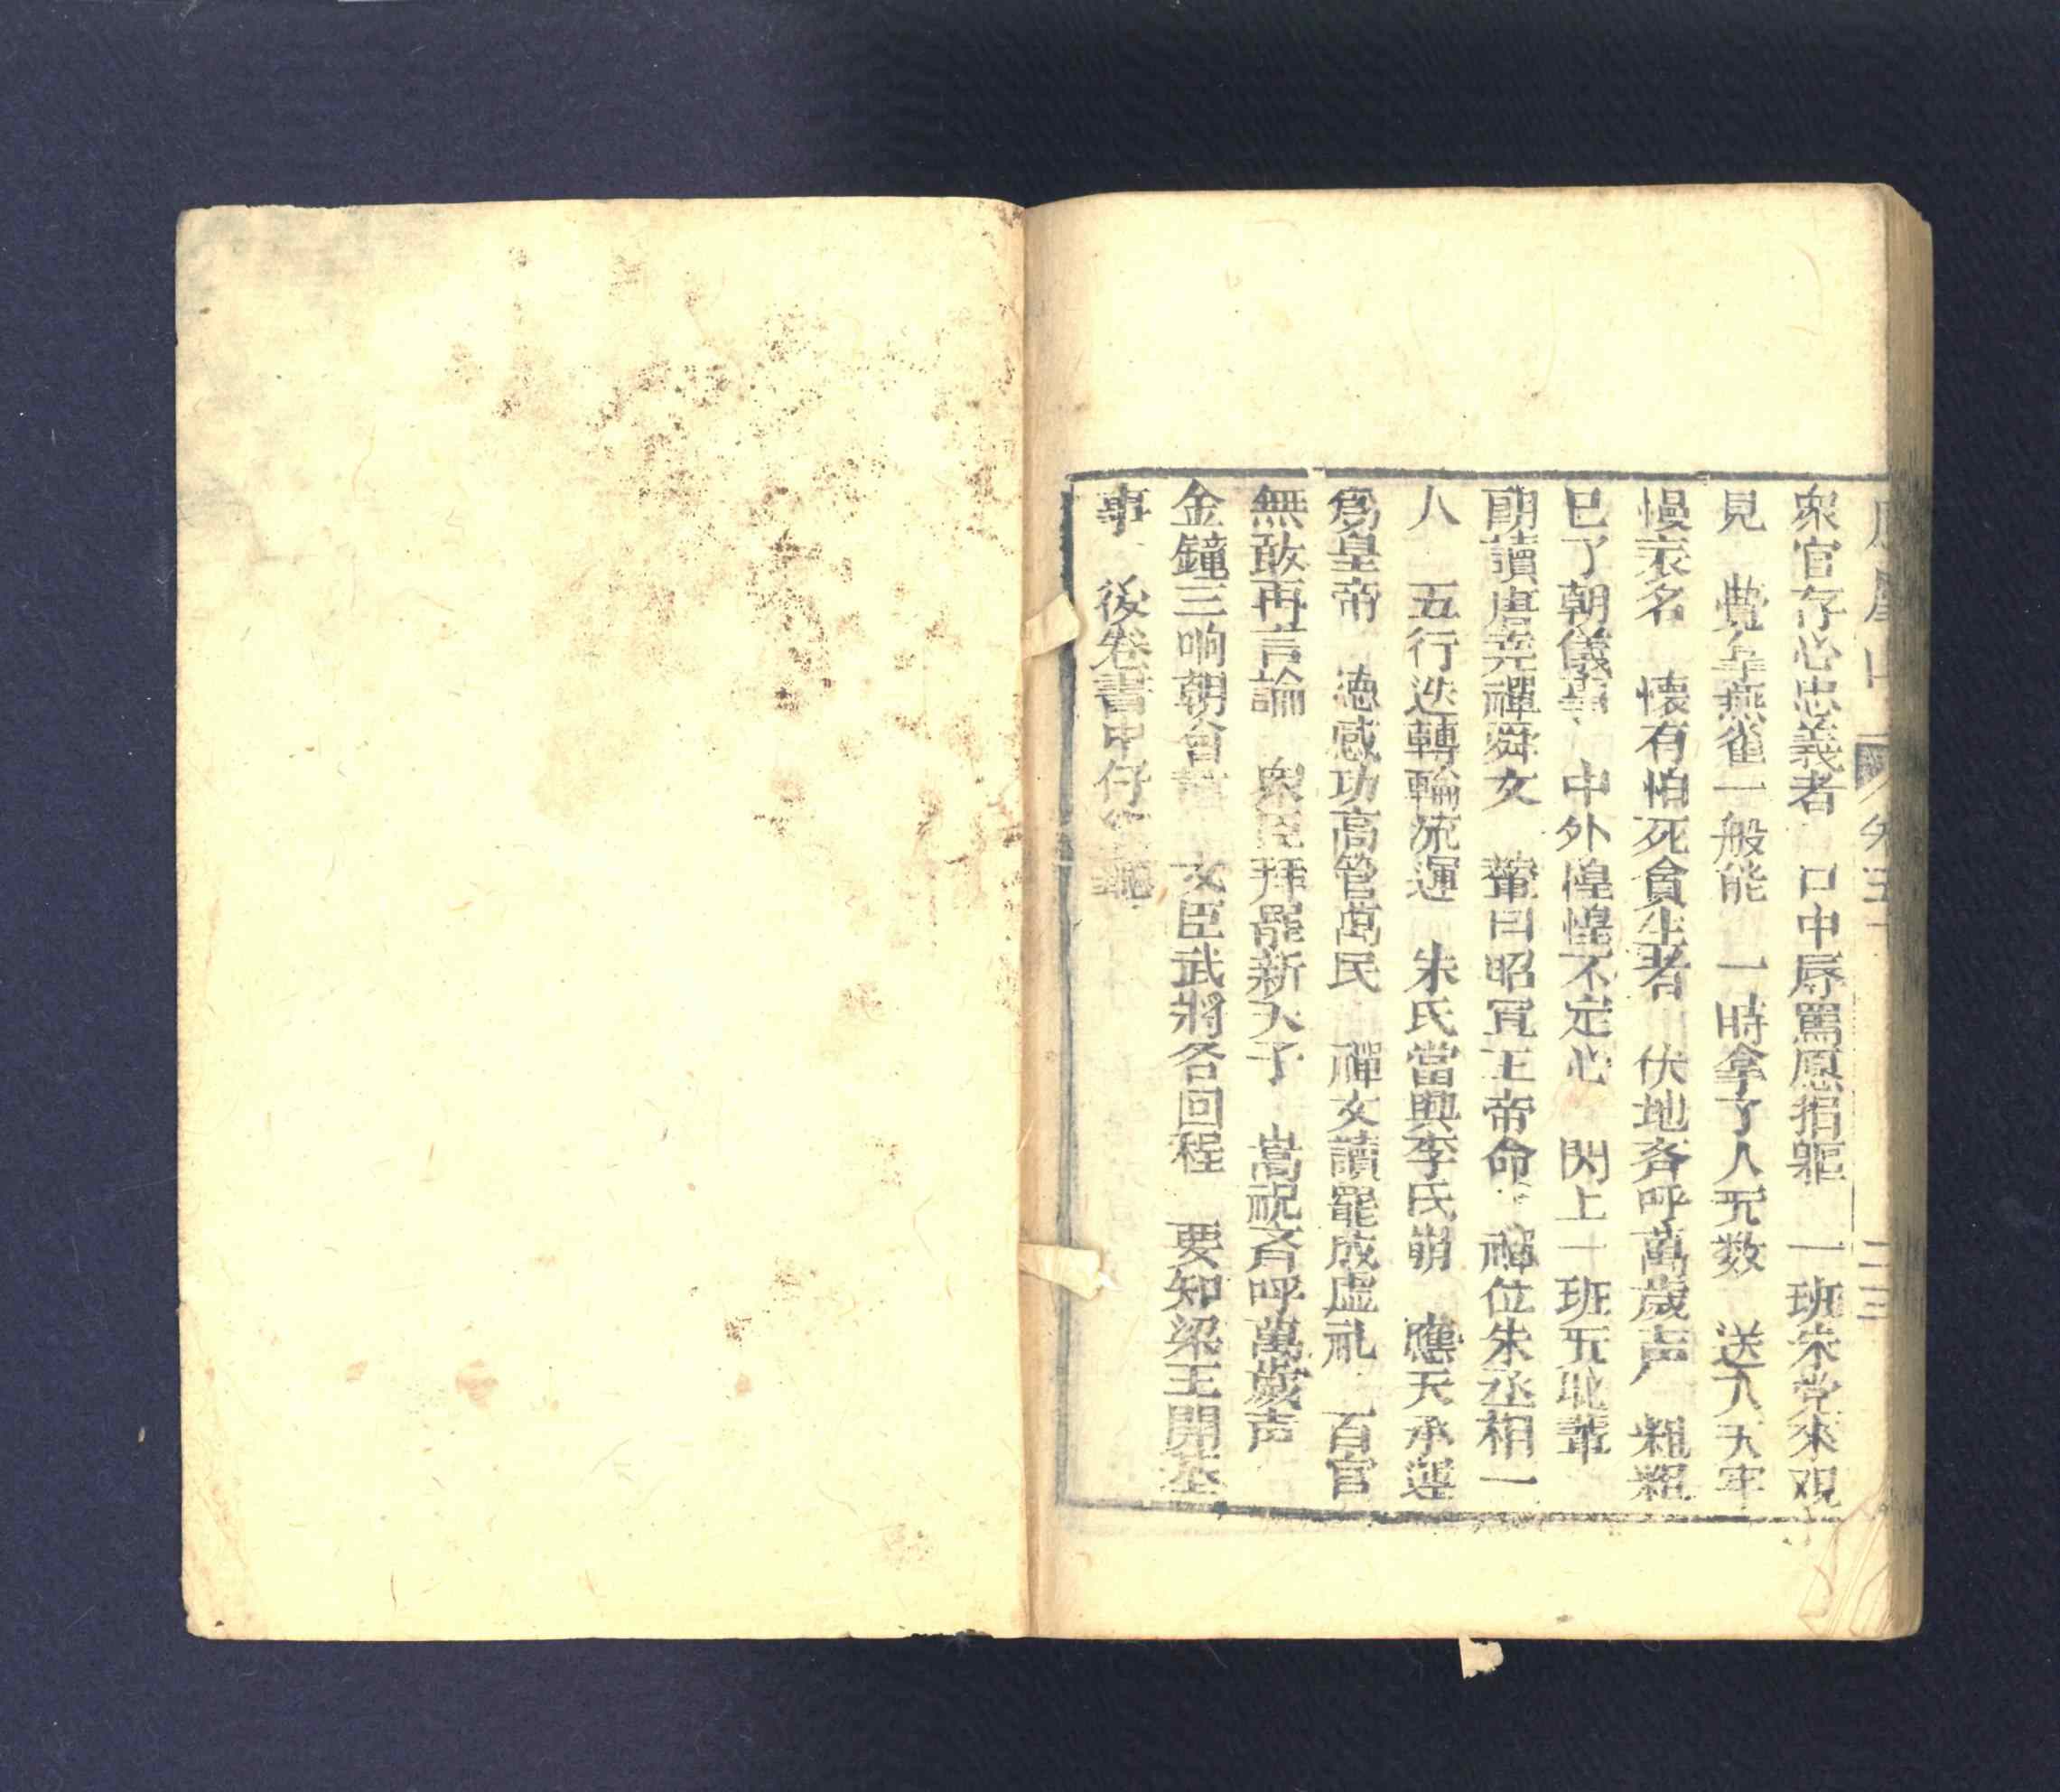 衆官存心忠義者 口中辱罵愿捐軀 一班朱党來观
見 雙隼燕雀一般能 一時拿了人无数 送入天牢
慢表名 懐有怕死貪生者 伏地斉呼萬歲声 粗粗
已了朝儀事 中外惶惶不定心 閃上一班无恥輩
朗讀唐尭禪舜文 詔曰昭宣正帝命 禪位朱丞相一
人 五行迭轉輪流運 朱氏當興李氏崩 應天承運
爲皇帝 德感功高管萬民 禪文讀罷成虚礼 百官
無敢再言論 衆臣拜罷新天子 嵩祝斉呼萬歲声
金鐘三响朝會 文臣武將各回程 要知梁王開基
事 後卷書中仔
二三